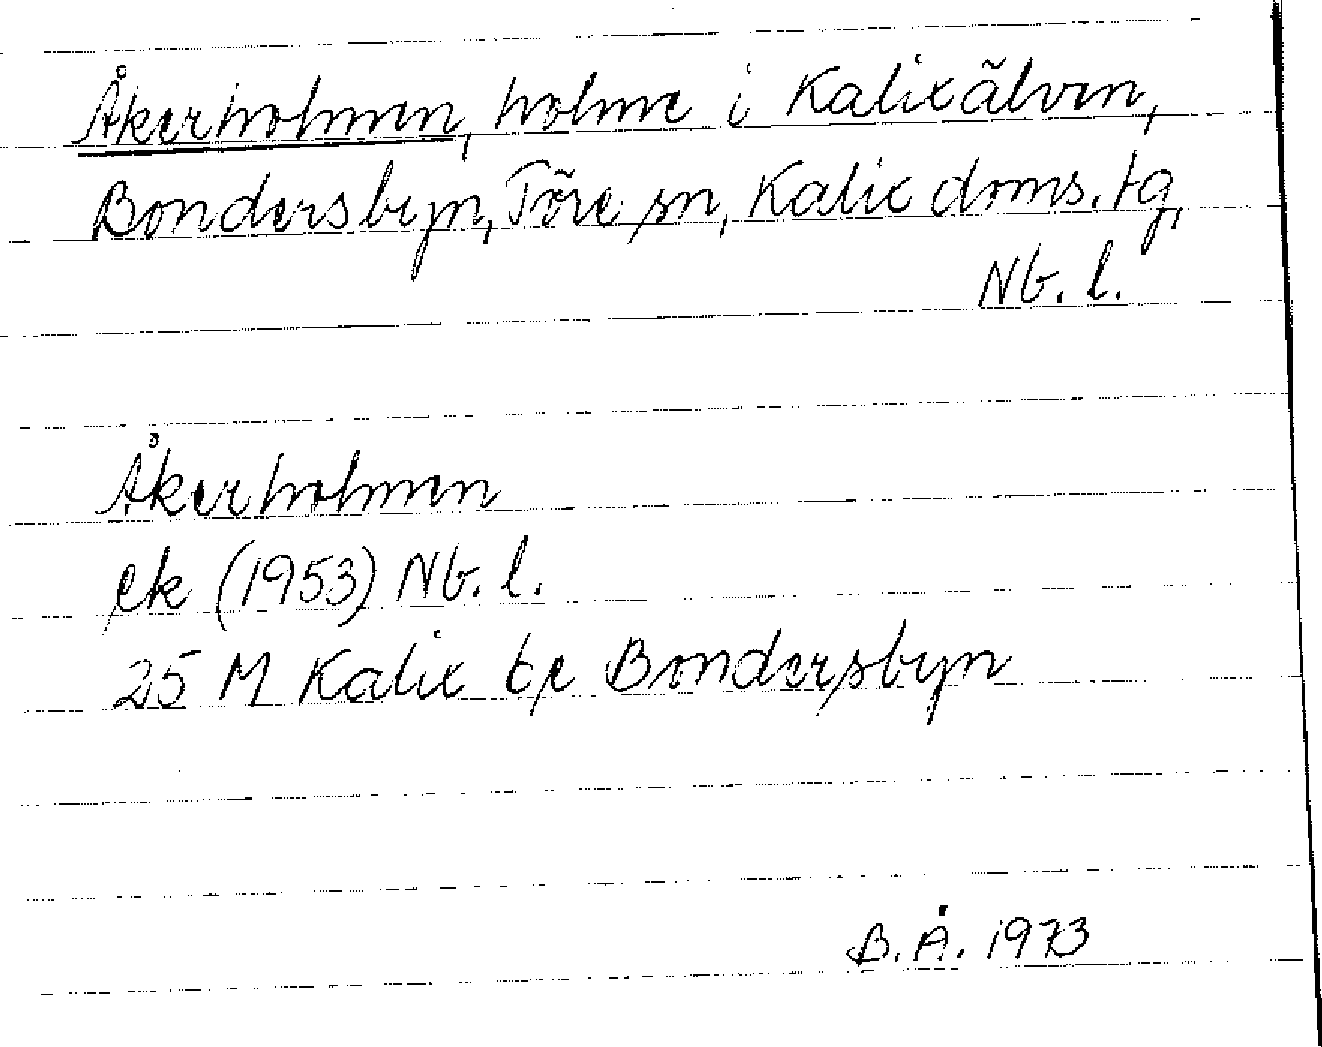 Åkerholmen, holme i Kalixälven,
Bondersbyn, Töre sn, Kalix doms. tg,
Nb. l.
Åkerholmen
ek (1953) Nb. l.
25 M Kalix bl Bondersbyn
B.Å. 1973